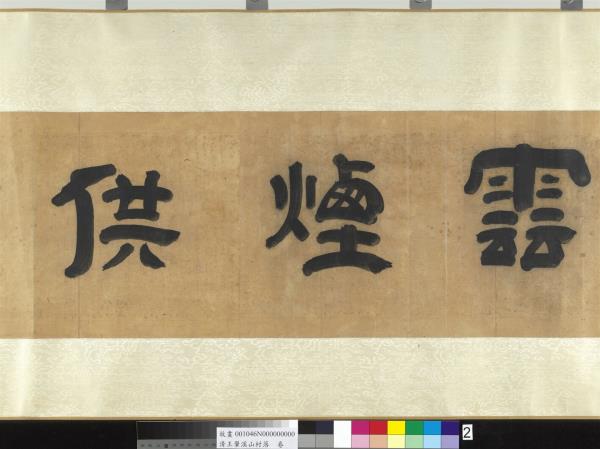 雲煙供
故畫 001046N000000000
清王翬溪山村落 卷
2